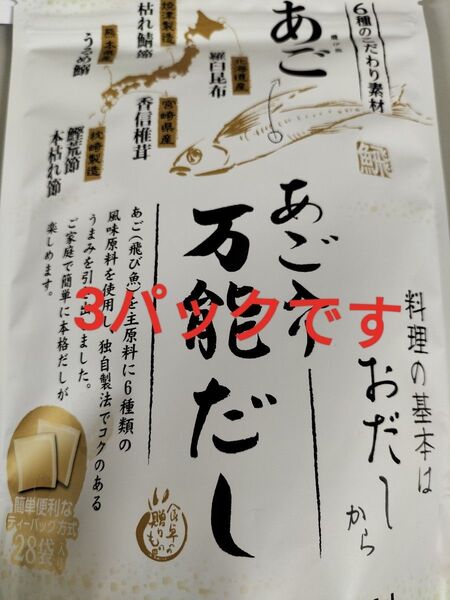 6種のこだわり素材
あご
飛び魚
焼津製造
枯れ鯖節
熊本県産
うるめ鰯
北海道産
羅臼昆布
宮崎県産
香信椎茸
枕崎製造
鰹荒節
本枯れ節
料理の基本は
おだしから
あご入
万能だし
あご(飛び魚)を主原料に6種類の
風味原料を使用し、独自製法でコクのある
うまみを引き出しました。
ご家庭で簡単に本格だしが
楽しめます。
3パックです
簡単便利な
ティーバッグ方式
28袋入り
食卓への
贈りもの